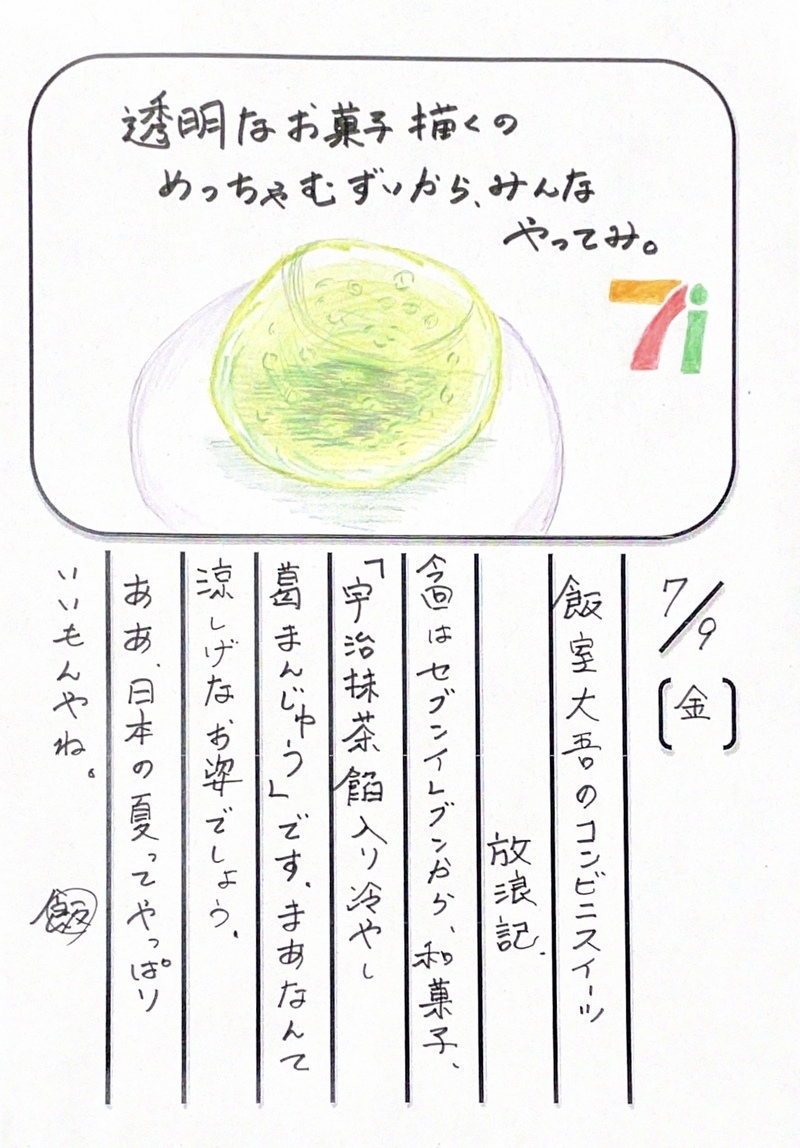 透明なお菓子描くの
めっちゃむずいから、みんな
やってみ。
7i
7/9
(金)
飯室大吾のコンビニスイーツ
放浪記.
今回はセブンイレブンから、和菓子、
「宇治抹茶餡入り冷やし
葛まんじゅう」です。まあなんて
涼しげなお姿でしょう。
ああ、日本の夏ってやっぱり
いいもんやね。
飯